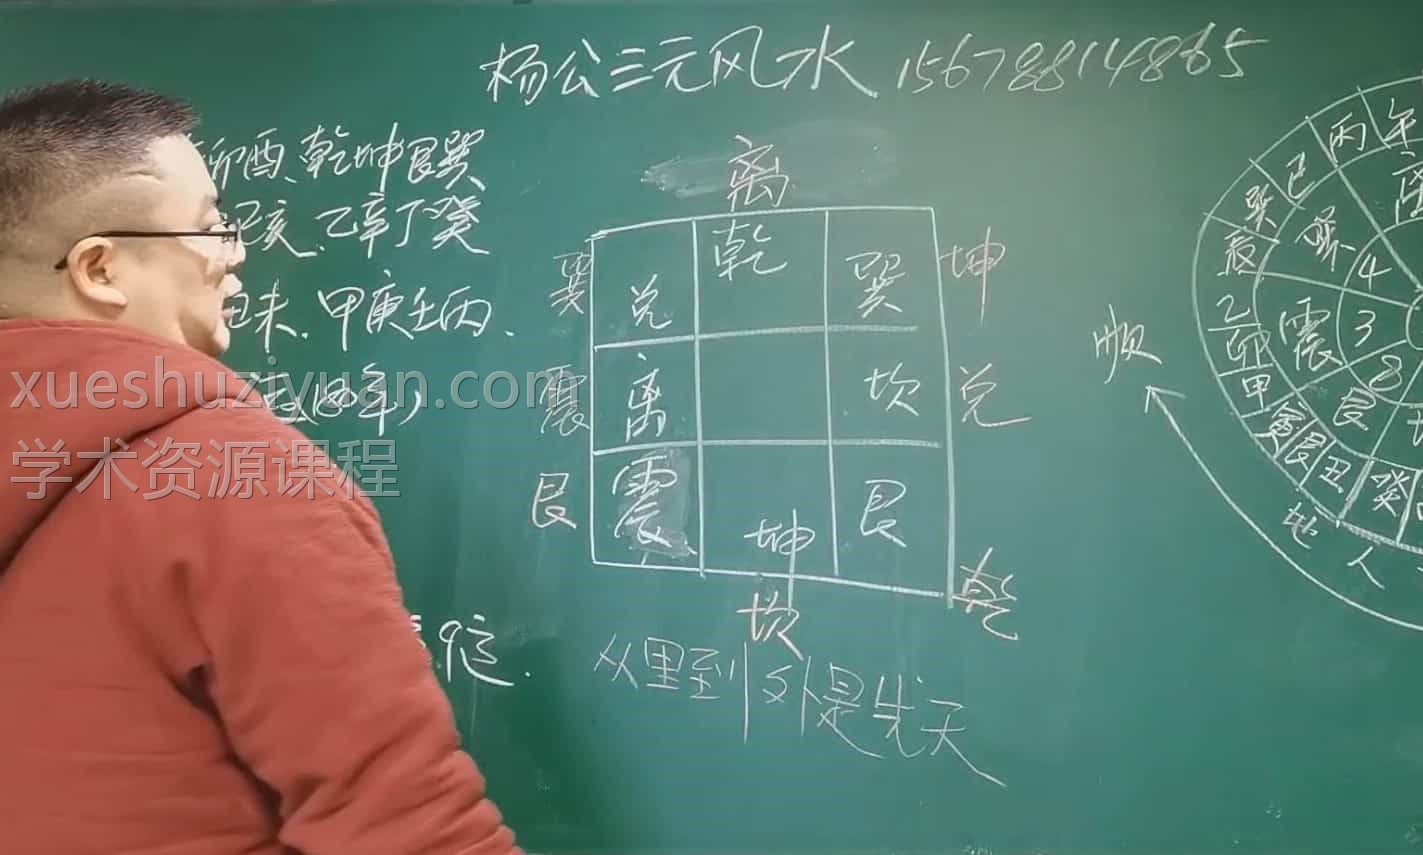 杨公三元风水 15678814865
卯酉、乾坤艮巽
巳亥、乙辛丁癸
丑未、甲庚壬丙、
(180年)
xueshuziyuan.com
学术资源课程
离
巽 兑 乾 巽 坤
震 离 坎 兑
艮 震 坤 艮 乾
坎
从里到外是先天
顺
午
丙
巳
巽
辰
乙
卯
甲
寅
艮
丑
癸
离
巽
震
艮
4
3
8
地
人